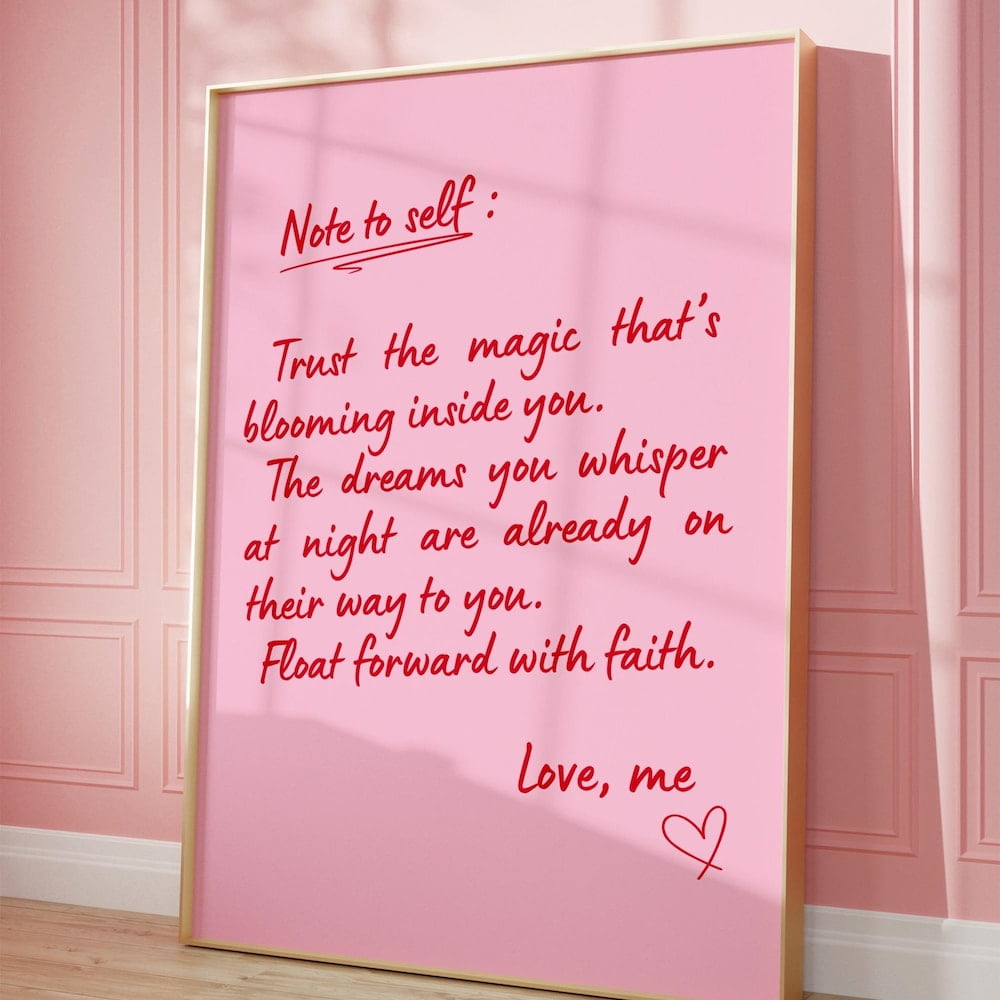 Note to self :
Trust the magic that's
blooming inside you.
The dreams you whisper
at night are already on
their way to you.
Float forward with faith.
Love, me